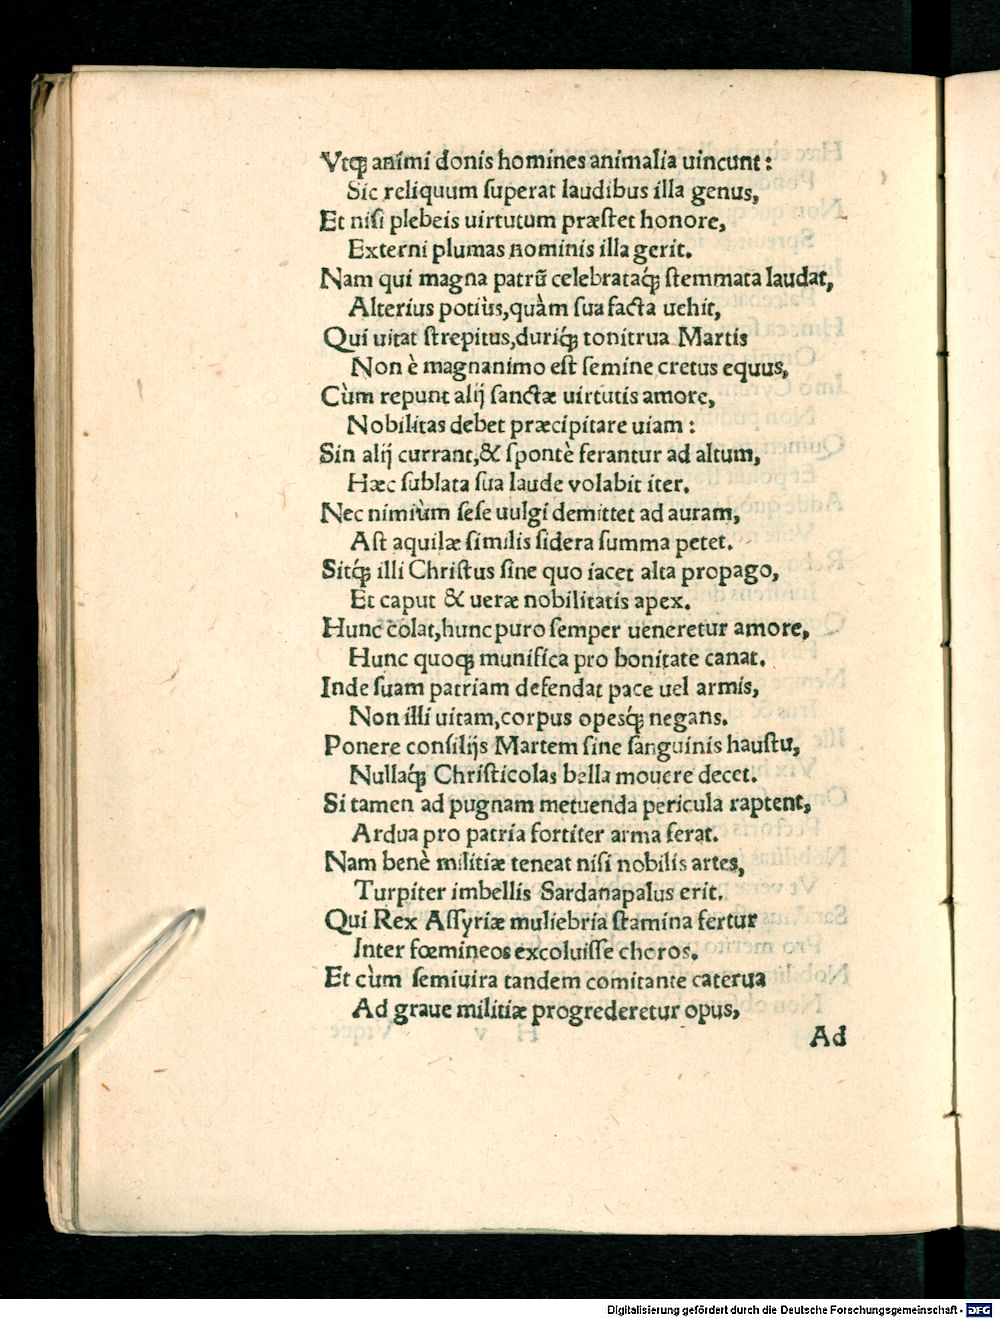 Vtq́ꝫ animi donis homines animalia uincunt:
Sic reliquum ſuperat laudibus illa genus,
Et niſi plebeis uirtutum præſtet honore,
Externi plumas nominis illa gerit.
Nam qui magna patrũ celebrataq́ꝫ ſtemmata laudat,
Alterius potiùs,quàm ſua facta uehit,
Qui uitat ſtrepitus,duriq́ꝫ tonitrua Martis
Non è magnanimo eſt ſemine cretus equus,
Cùm repunt alij ſanctæ uirtutis amore,
Nobilitas debet præcipitare uiam:
Sin alij currant,& ſpontè ferantur ad altum,
Hæc ſublata ſua laude volabit iter.
Nec nimiùm ſeſe uulgi demittet ad auram,
Aſt aquilæ ſimilis ſidera ſumma petet.
Sitq́ꝫ illi Chriſtus ſine quo iacet alta propago,
Et caput & ueræ nobilitatis apex.
Hunc colat,hunc puro ſemper ueneretur amore,
Hunc quoqꝫ munifica pro bonitate canat.
Inde ſuam patriam defendat pace uel armis,
Non illi uitam,corpus opesq́ꝫ negans.
Ponere conſilijs Martem ſine ſanguinis hauſtu,
Nullaq́ꝫ Chriſticolas bella mouere decet.
Si tamen ad pugnam metuenda pericula raptent,
Ardua pro patria fortiter arma ferat.
Nam benè militiæ teneat niſi nobilis artes,
Turpiter imbellis Sardanapalus erit.
Qui Rex Aſſyriæ muliebria ſtamina fertur
Inter fœmineos excoluiſſe choros.
Et cùm ſemiuira tandem comitante caterua
Ad graue militiæ progrederetur opus,
Ad
Digitalisierung gefördert durch die Deutsche Forschungsgemeinschaft - DFG